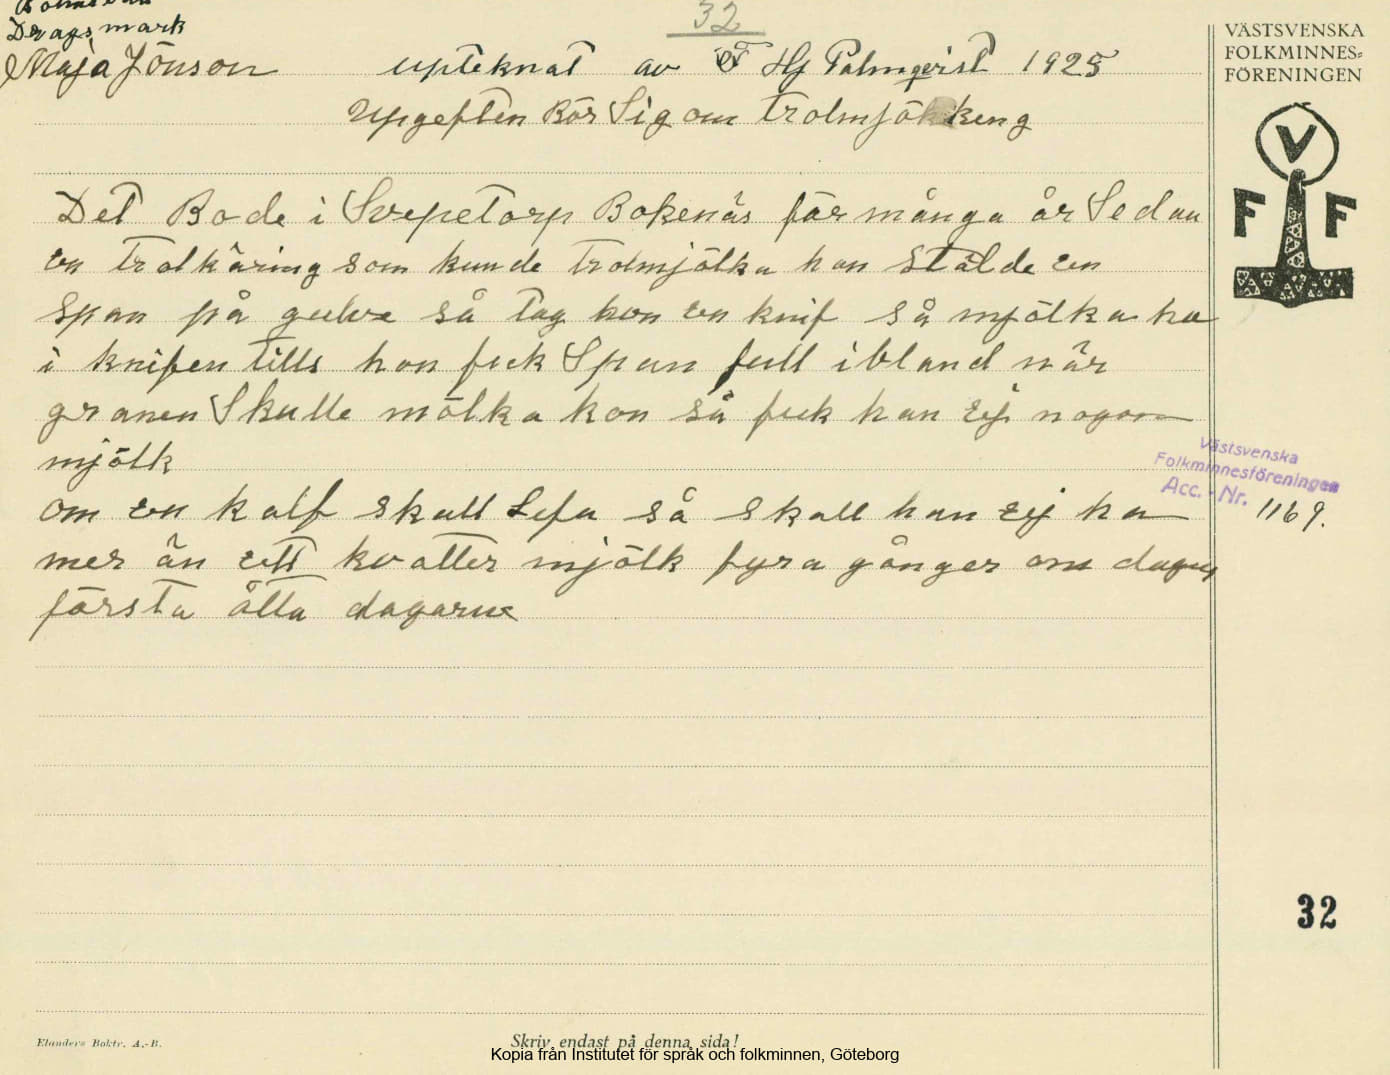 Dragsmark
32
Maja Jönson upteknat av Hj Palmqvist 1925
Upgeften Rör Sig om trolmjölkeng
Det Bode i Svepetorp Bokenäs för många år Sedan
en trolkäring som kunde trolmjölka hon stälde en
Span på gulve så tag hon en knif så mjölka ho
i knifen tills hon fick Span full ibland när
granen Skulle mölka kon så fick han ej nogon
mjölk
om en kalf skall Lefa så skall han ej ha
mer än ett kvatter mjölk fyra gånger om dagen
första åtta dagarne
VÄSTSVENSKA
FOLKMINNES=
FÖRENINGEN
V
F F
Västsvenska
Folkminnesföreningen
Acc. - Nr. 1169.
32
Elanders Boktr. A.-B.
Skriv endast på denna sida!
Kopia från Institutet för språk och folkminnen, Göteborg